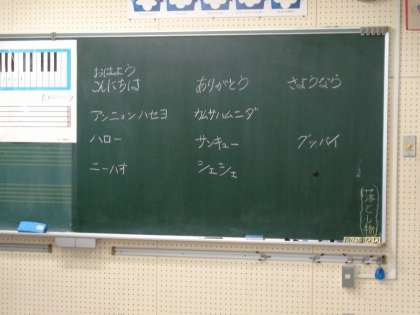 おはよう
こんにちは ありがとう さようなら
アンニョンハセヨ カムサハムニダ
ハロー サンキュー グッバイ
ニーハオ シェシェ
落とし物